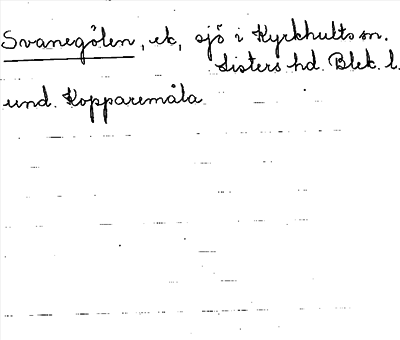 Svanegölen, ek, sjö i Kyrkhults sn.
Listers hd. Blek. l.
und. Kopparemåla